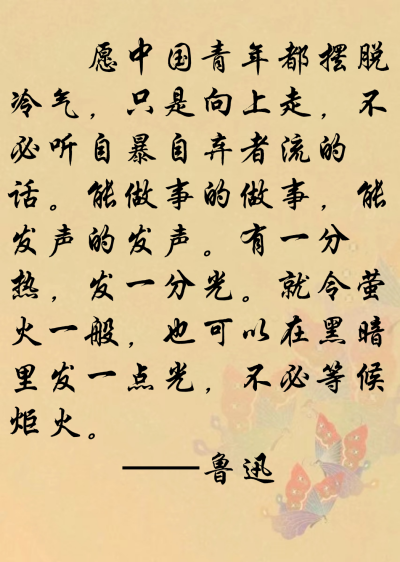 愿中国青年都摆脱
冷气，只是向上走，不
必听自暴自弃者流的
话。能做事的做事，能
发声的发声。有一分
热，发一分光。就令萤
火一般，也可以在黑暗
里发一点光，不必等候
炬火。
——鲁迅